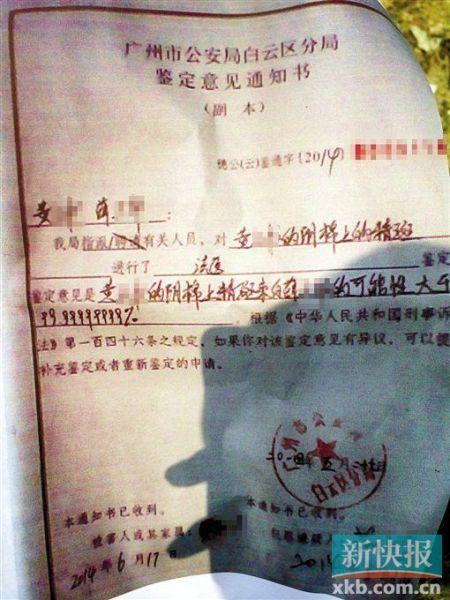 广州市公安局白云区分局
鉴定意见通知书
(副本)
穗公(云)鉴通字〔2014〕
黄
我局指派/聘请有关人员，对黄 的阴棉上的精斑
进行了 法医 鉴定
鉴定意见是黄 的阴棉上精斑来自薛 的可能性大于
99.99999999%。根据《中华人民共和国刑事诉
法》第一百四十六条之规定，如果你对该鉴定意见有异议，可以提
补充鉴定或者重新鉴定的申请。
广州市公安局
白云区分局
本通知书已收到。
被害人或其家属：
2014年6月17日
本通知书已收到。
犯罪嫌疑人
201
新快报
xkb.com.cn